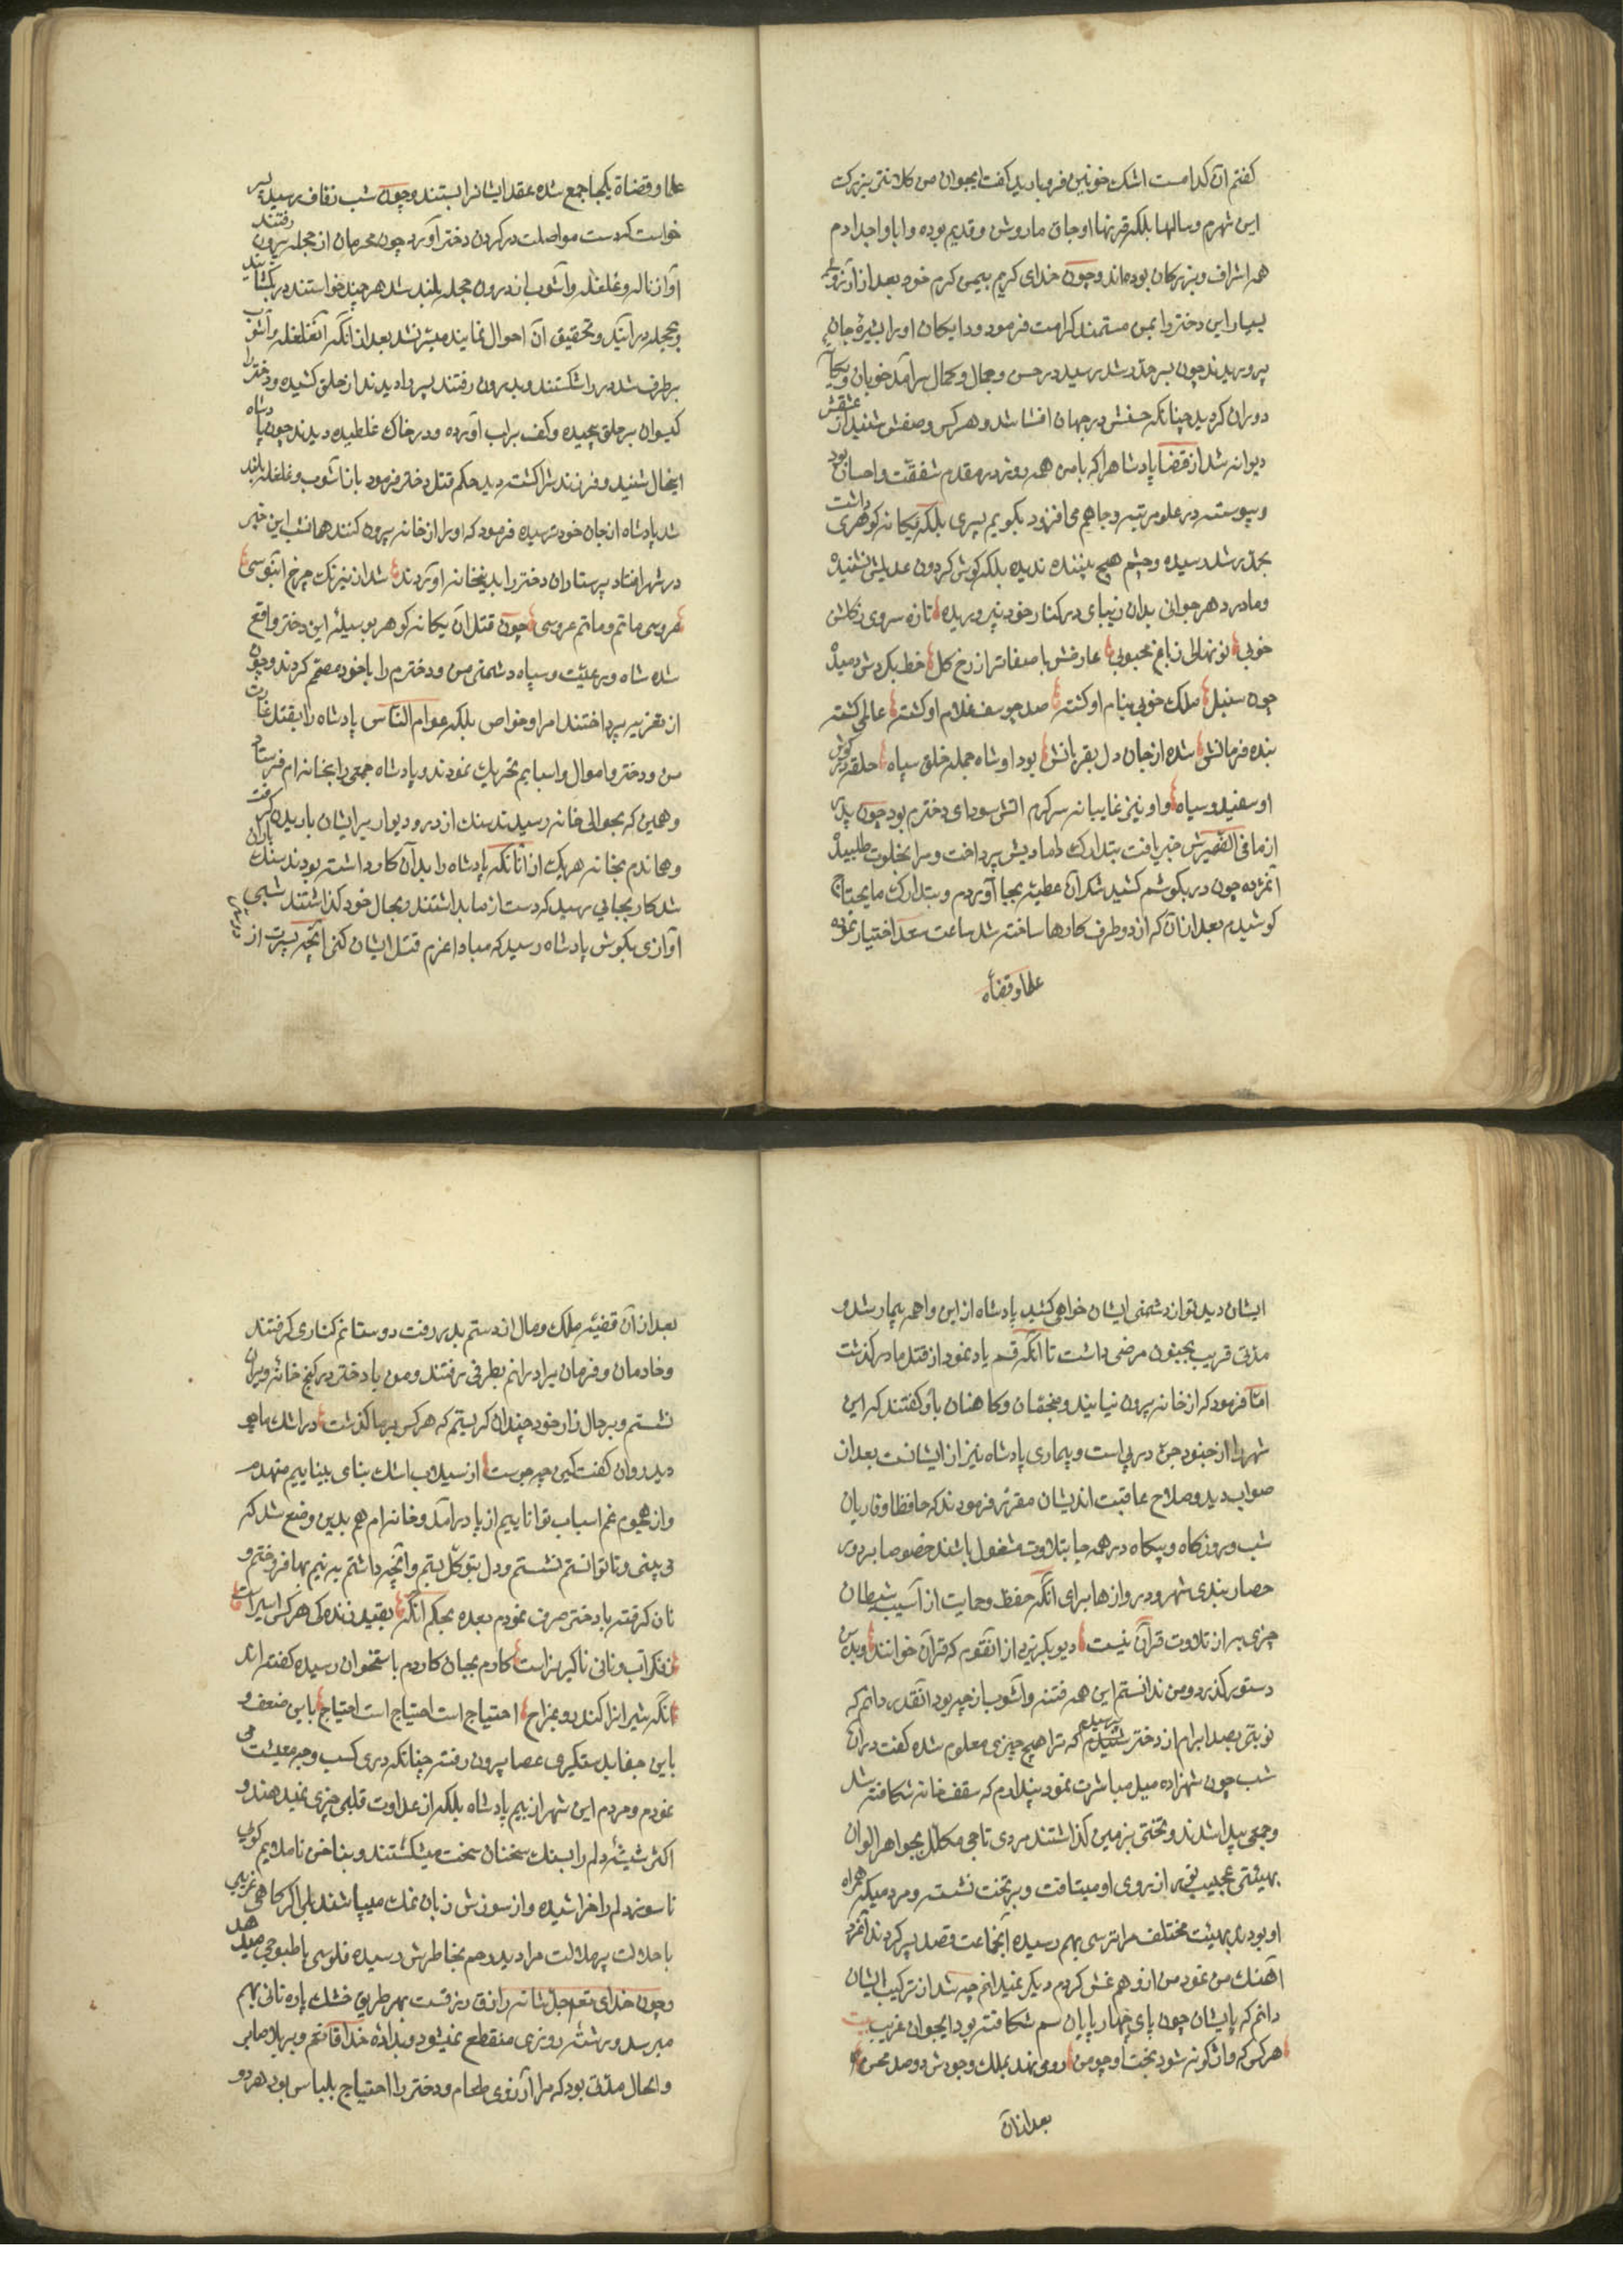 کفتم آن کدامست اشک خونین فروبارید کفت ایجوان من کلانتر بزرک
این شهرم وسالها بلکه قرنها اوجاق ما روشن وقدیم بوده وابا واجدادم
همه اشراف وبزرکان بوده‌اند وچون خدای کریم بیمن کرم خود بعد از آرزوی
بسیار این دختر را بمن مستمند کرامت فرمود ودایکان او را بشیرهٔ جان
پروریدند چون بسر حد رشد رسید در حسن وجمال وکمال سرآمد خوبان ویکتای
دوران کردید چنانکه حسنش در جهان افشا شد وهر کس وصفش شنید از عشقش
دیوانه شد از قضا پادشاهرا که با من همه روزه در مقدم شفقت واحسان بود
وپیوسته در علو مرتبه وجاهم می‌افزود بکویم پسری بلکه یکانه کوهری داشت
بحد رشد رسیده وچشم هیچ بیننده ندیده بلکه کوش کردون عدیلش نشنیده
ومادر دهر جوانی بدان زیبای در کنار خود نپروریده تازه سروی ز کلشن
خوبی نونهالی ز باغ محبوبی عارضش باصفاتر از رخ کل خط بکردش دمیده
چون سنبل ملک خوبی بنام او کشته صد چو یوسف غلام او کشته عالمی کشته
بنده فرمانش شده از جان و دل بقربانش بود او شاه جمله خلق سپاه حلقه در کوش
او سفید وسیاه واو نیز غایبانه سرکرم آتش سودای دخترم بود چون پدر
از ما فی الضمیرش خبر یافت بتدارک دامادیش پرداخت ومرا بخلوت طلبیده
آنمژده چون در بکوشم کشید شکر آن عطیه بجا آوردم وبتدارک مایحتاج
کوشیدم بعد از آن که از دو طرف کارها ساخته شد ساعت سعد اختیار نموده
علما وقضاة
علما وقضاة یکجا جمع شده عقد ایشانرا بستند وچون شب زفاف رسید پسر
خواست که دست مواصلت در کردن دختر آورد چون محرمان از حجله بیرون رفتند
آواز ناله وغلغله وآشوب از درون حجله بلند شد هر چند خواستند در بکشایند
وبحجله درآیند وتحقیق آن احوال نمایند میسر نشد بعد از آنکه آنغلغله وآشوب
برطرف شد در را شکستند وبدرون رفتند پسر را دیدند از حلق کشیده ودختر را
کیسوان بر حلق پیچیده وکف بر لب آورده ودر خاک غلطیده دیدند چون پادشاه
اینحال شنید وفرزندش را کشته دید حکم قتل دختر فرمود باز آشوب وغلغله بلند
شد پادشاه از جان خود ترسیده فرمود که او را از خانه بیرون کنند همانشب این خبر
در شهر افتاد پرستاران دختر را بدینخانه آوردند شد از نیرنک چرخ آبنوسی
عروسی ماتم وماتم عروسی چون قتل آن یکانه کوهر بوسیلهٔ این دختر واقع
شده شاه ورعیت وسپاه دشمنی من ودخترم را با خود مصمم کردند وچون
از تعزیه پرداختند امرا وخواص بلکه عوام الناس پادشاه را بقتل وغارت
من ودختر واموال واسبابم تحریک نمودند وپادشاه جمعی را بخانه‌ام فرستاد
وهمین که بحوالی خانه رسیدند سنک از در ودیوار بر ایشان باریدن کرفت
وهماندم بخانه هر یک از آنانکه پادشاه را بدآن کار داشته بودند سنک باران
شد کار بجایی رسید که دست از ما بداشتند وبحال خود کذاشتند شبی
آوازی بکوش پادشاه رسید که مبادا عزم قتل ایشان کنی آنچه پسرت از دختر
ایشان دید تو از دشمنی ایشان خواهی کشید پادشاه از این واهمه بیمار شد و
مدتی قریب بجنون مرضی داشت تا آنکه قسم یاد نمود از قتل ما درکذشت
اما فرمود که از خانه بیرون نیایند ومنجمان وکاهنان باو کفتند که این
شهر را از جنود جن در پی است وبیماری پادشاه نیز از ایشانست بعد از
صواب دید وصلاح عاقبت اندیشان مقرر فرمودند که حافظا وقاریان
شب وروز کاه وبیکاه در همه جا بتلاوت مشغول باشند خصوصا بر دور
حصار بندی شهر ودروازها برای آنکه حفظ وحمایت از آسیب شیطان
چیزی به از تلاوت قرآن نیست دیو بکریزد از آنقوم که قرآن خوانند وبدین
دستور کذرد ومن ندانستم این همه فتنه وآشوب از چه بود آنقدر دانم که
نوبتی بصد ابرام از دختر پرسیدم که ترا هیچ چیزی معلوم شده کفت در آن
شب چون شهزاده میل مباشرت نمود پندارم که سقف خانه شکافته شد
وجمعی پیدا شدند وتختی بزمین کذاشتند مردی تاجی مکلل بجواهر الوان
بهیئتی عجیب نور از روی او میتافت وبر تخت نشسته ومردمیکه همراه
او بودند بهیئت مختلف مرا ترسی بهم رسیده آنجماعت قصد پسر کردند آنمرد
آهنک من نمود من از وهم غش کردم دیکر نمیدانم چه شد از ترکیب ایشان
دانم که پایشان چون پای چهارپایان سم شکافته بود ایجوان غریب بیت
هر کس که واژکونه شود بخت او چو من رو می‌نهد بملک وجودش دو صد محن
بعد از آن
بعد از آن قضیه ملک ومال از دستم بدر رفت دوستانم کناری کرفتند
وخادمان وفرمان برادرانم بطرفی رفتند ومن با دختر در کنج خانه ویران
نشستم وبر حال زار خود چندان کریستم که هر کس بر ما کذشت در اشک ما چو
دید روان کفت کین چه جوست از سیلاب اشک بنای بیناییم منهدم
واز هجوم غم اسباب تواناییم از پا درآمد وخانه‌ام هم بدین وضع شد که
می‌بینی وتا توانستم نشستم ودل بتوکل بستم وآنچه داشتم به نیم بها فروختم و
نان کرفته با دختر صرف نمودم بعده بحکم آنکه بقید زندکی هر کس اسیر است
ز فکر آب ونانی ناکزیر است کارم بجان کاردم باستخوان رسیده کفته‌اند
آنکه شیرانرا کند روبه‌مزاج احتیاج است احتیاج است احتیاج با این ضعف و
با این جفا بدستکیری عصا بیرون رفته چنانکه دری کسب وجه معیشت می
نمودم ومردم این شهر از بیم پادشاه بلکه از عداوت قلبی چیزی نمیدهند و
اکثر شیشه دلم را بسنک سخنان سخت میشکستند وبناخن ناملایم کوئی
ناسور دلم را خراشیده واز سوزش زبان نمک میپاشند بلی اکر کاهی غریبی
با حالت پرملالت مرا دید رحم بخاطرش رسیده فلوسی یا طبوخی میدهد
وچون خدای تعم جل شانه رازق رزقست بهر طریق خشک پاره نانی بهم
میرسد ورشتهٔ روزی منقطع نمیشود وبدادهٔ خدا قانعم وبر بلا صابر
والحال مدتی بود که مرا آرزوی طعام ودختر را احتیاج بلباس بود هر دو